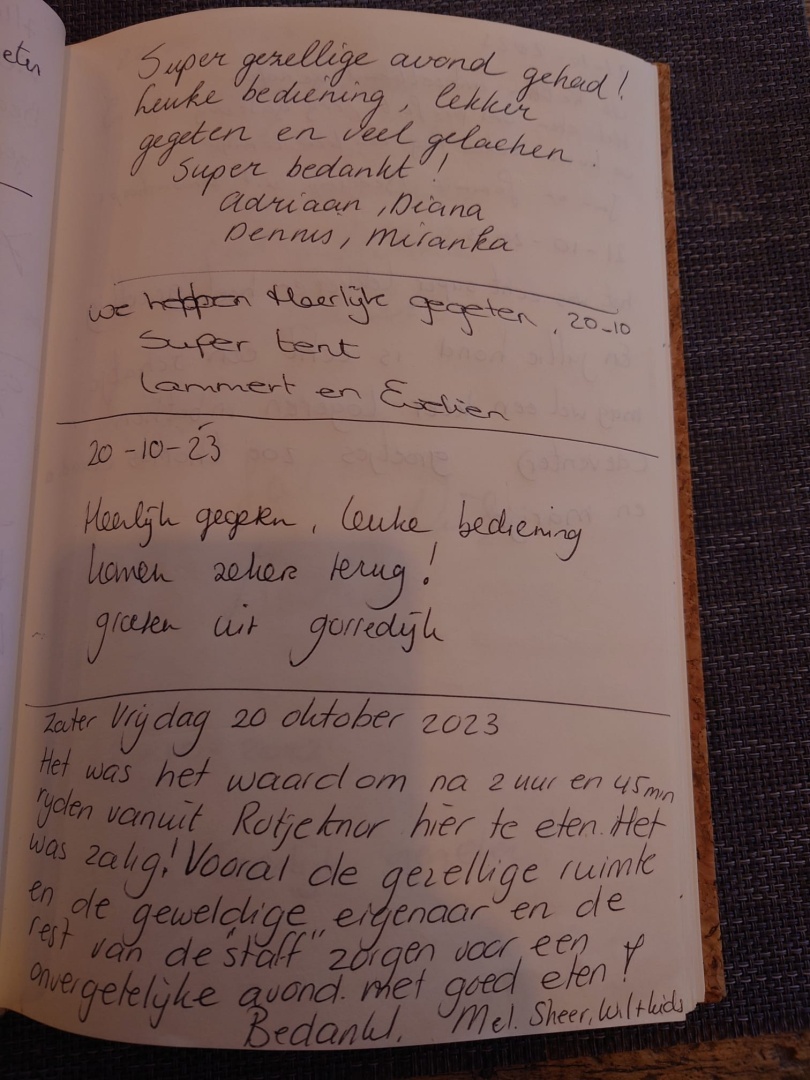 eten
Super gezellige avond gehad!
Leuke bediening, lekker
gegeten en veel gelachen.
Super bedankt!
Adriaan, Diana
Dennis, Miranka
we heppen Heerlijk gegeten, 20-10
Super tent
Lammert en Evelien
20-10-23
Heerlijk gegeten, leuke bediening
komen zeker terug!
groeten uit gorredijk
Zater Vrijdag 20 oktober 2023
Het was het waard om na 2 uur en 45 min
ryden vanuit Rotjeknor hier te eten. Het
was zalig! Vooral de gezellige ruimte
en de geweldige eigenaar en de
rest van de "staff" zorgen voor een
onvergetelijke avond. met goed eten!
Bedankt. Mel. Sheer, Wil + kids